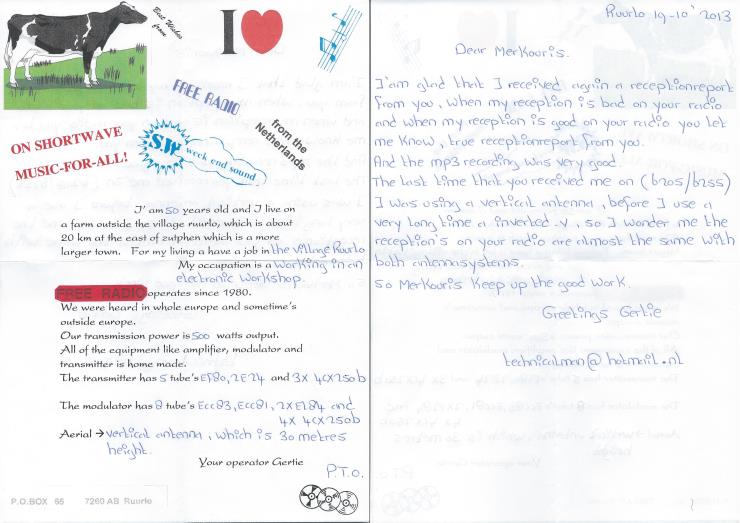 Best Wishes
from
I
FREE RADIO
from the
Netherlands
ON SHORTWAVE
MUSIC-FOR-ALL!
S.W. week end sound
I' am 50 years old and I live on
a farm outside the village ruurlo, which is about
20 km at the east of zutphen which is a more
larger town. For my living a have a job in the village Ruurlo
My occupation is a working in an
electronic workshop.
FREE RADIO operates since 1980.
We were heard in whole europe and sometime's
outside europe.
Our transmission power is 500 watts output.
All of the equipment like amplifier, modulator and
transmitter is home made.
The transmitter has 5 tube's EF80, 2E24 and 3X 4CX250b
The modulator has 8 tube's Ecc83, Ecc81, 2X EL84 and
4X 4CX250b
Aerial → vertical antenna, which is 30 metres
height.
Your operator Gertie
P.T.O.
P.O.BOX 65 7260 AB Ruurlo
Ruurlo 19-10' 2013
Dear Merkouris.
I'am glad that I received again a receptionreport
from you, when my reception is bad on your radio
and when my reception is good on your radio you let
me know, true receptionreport from you.
And the mp3 recording was very good.
The last time that you received me on (6205/6255)
I was using a vertical antenna, before I use a
very long time a inverted-V, so I wonder me the
reception's on your radio are almost the same with
both antennasystems.
So Merkouris keep up the good work.
Greetings Gertie
technicalman@hotmail.nl